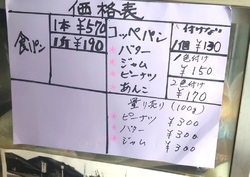 価格表
食パン
1本 ¥570
1斤 ¥190
コッペパン
バター
ジャム
ピーナツ
あんこ
付けなし
1個 ¥130
1色付け
¥150
2色付け
¥170
量り売り (100g)
ピーナツ ¥300
バター ¥300
ジャム ¥300